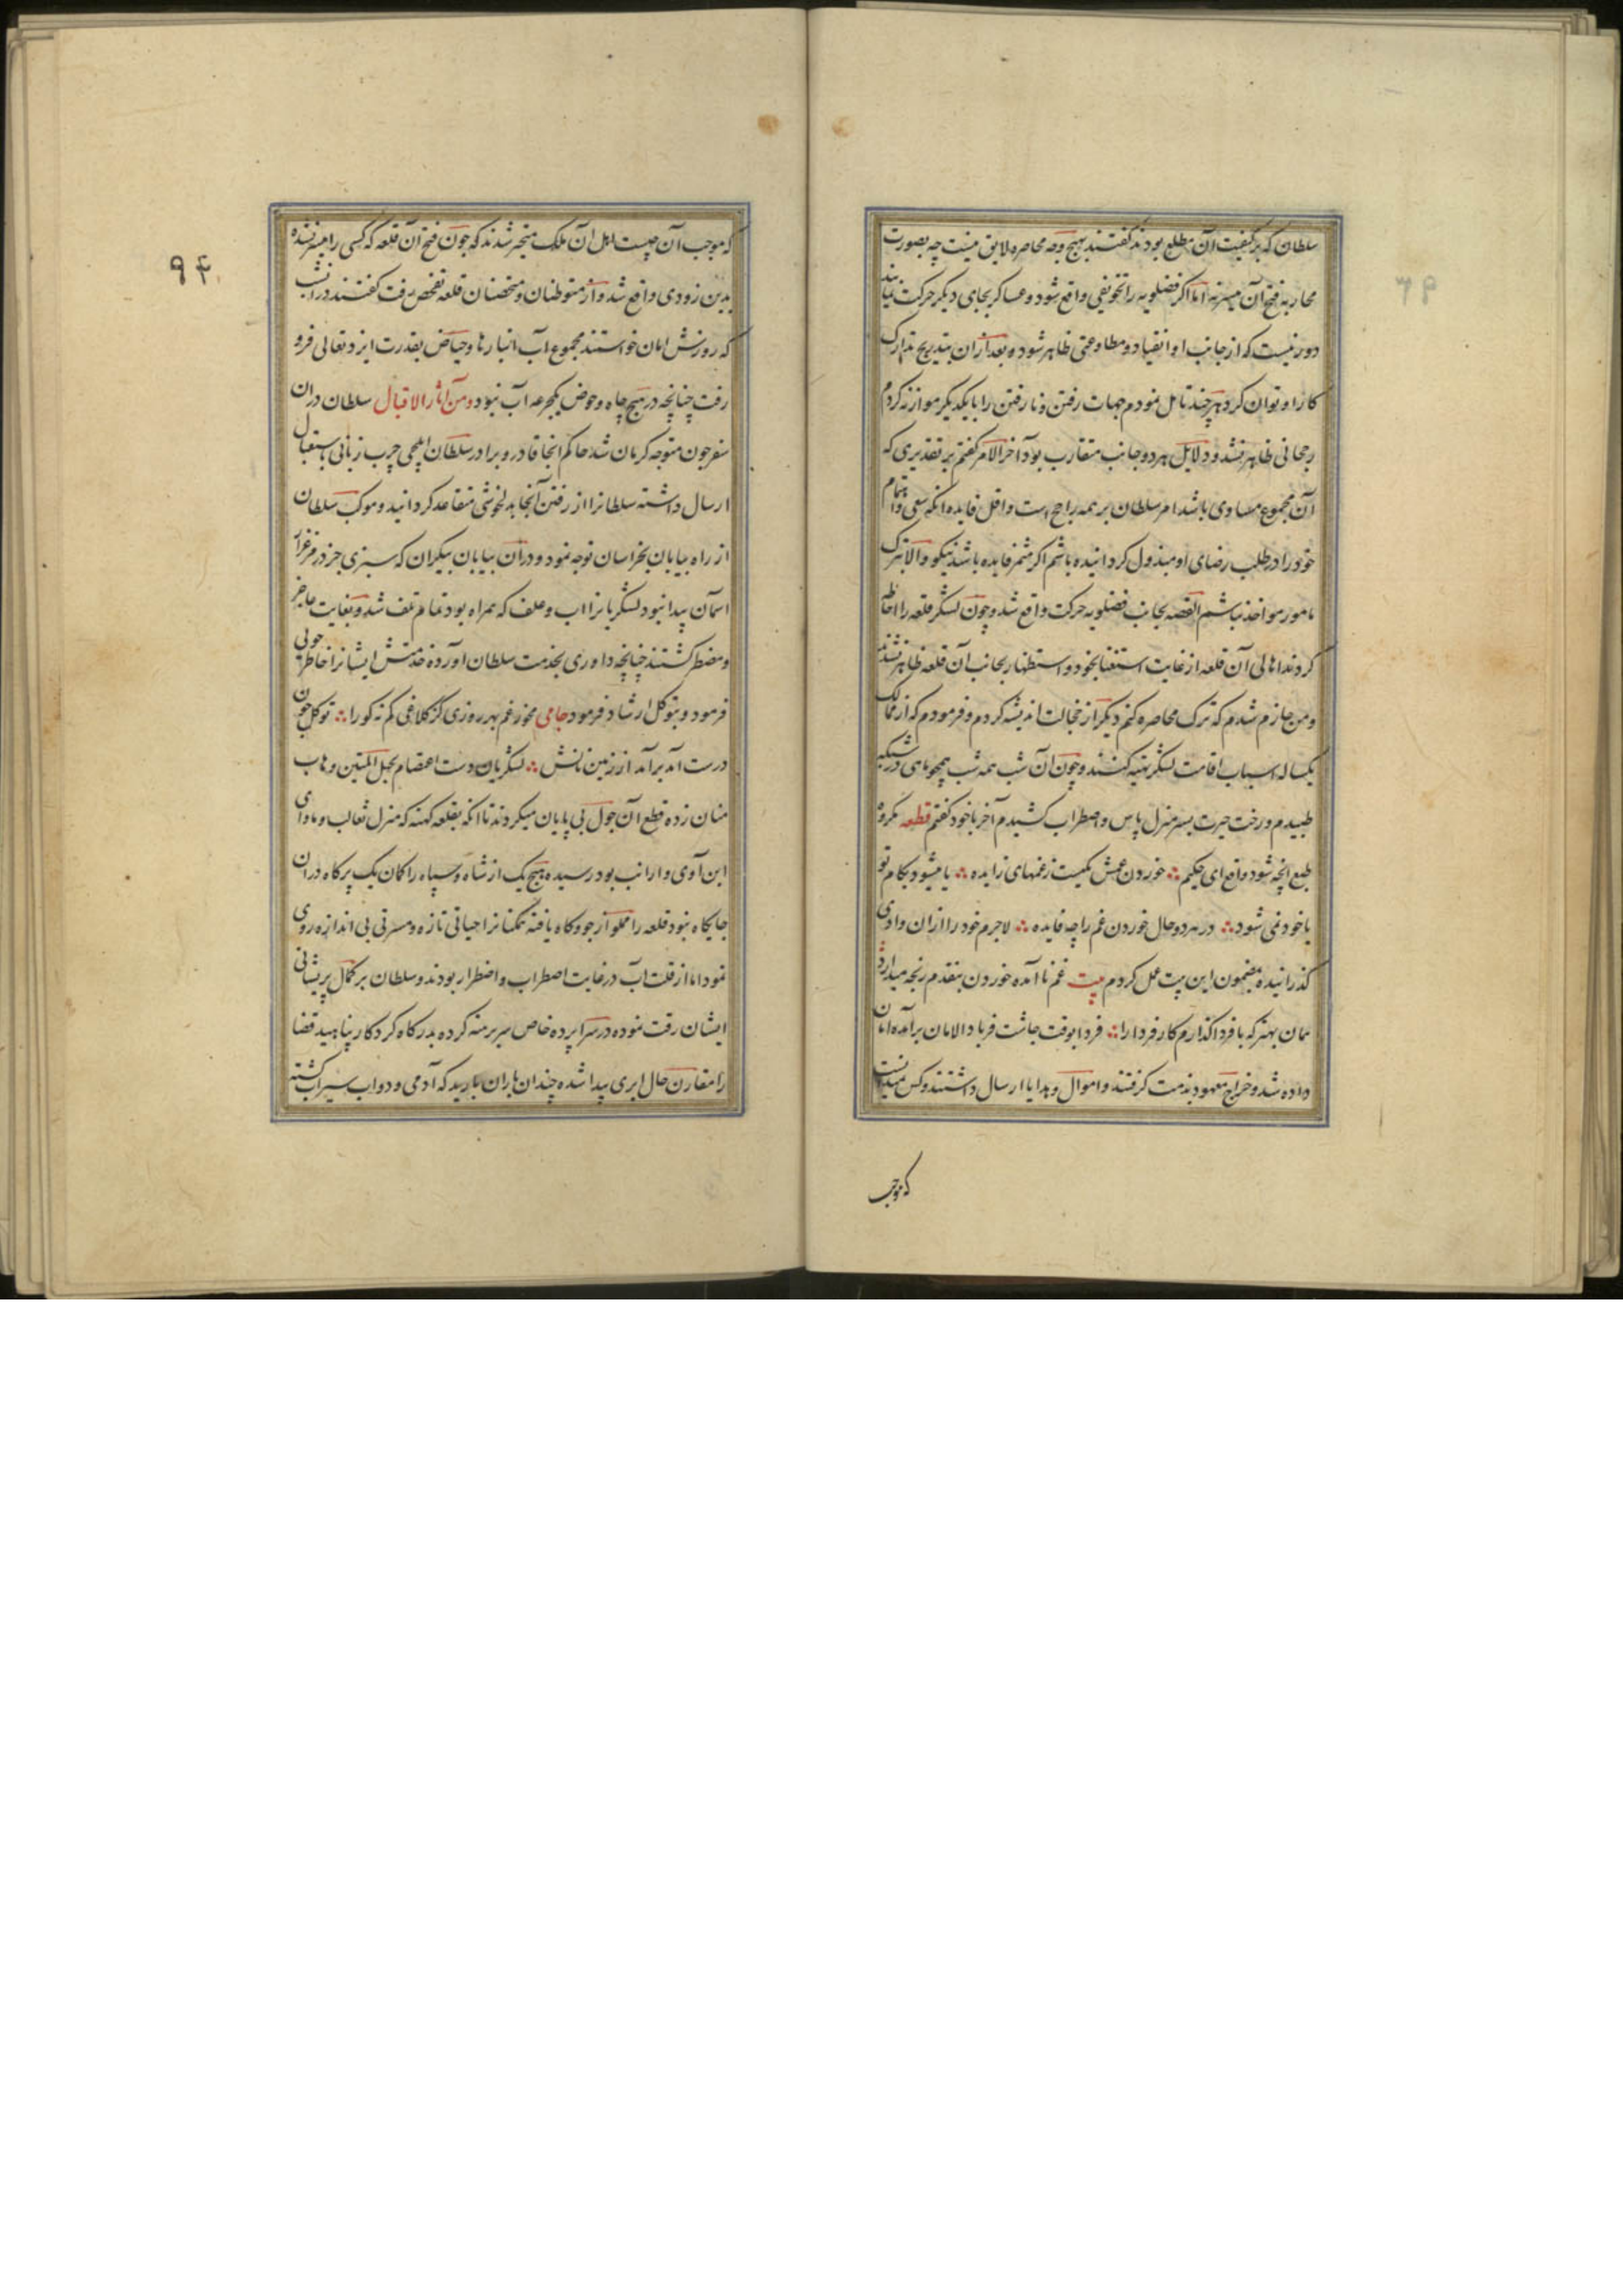 سلطان که بر کیفیت آن مطلع بودند گفتند بهیچ وجه محاصره لایق نیست چه بصورت
محاربه فتح آن میسر نه اما اکر فضلویه را تخویفی واقع شود و عساکر بجای دیکر حرکت نمایند
دور نیست که از جانب او انقیاد و مطاوعتی ظاهر شود و بعد ازان بتدریج تدارک
کار او توان کرد هر چند تامل نمودم جهات رفتن و نا رفتن را با یکدیکر موازنه کردم
رجحانی ظاهر نشد و دلایل هر دو جانب متقارب بود آخر الامر کفتم بر تقدیری که
آن مجموع مساوی باشد امر سلطان بر همه راجح است و اقل فایده انکه سعی و اهتمام
خود را در طلب رضای او مبذول کردانیده باشم اکر مثمر فایده باشد نیکو و الا بترک
مامور مواخذ نباشم القصه بجانب فضلویه حرکت واقع شد و چون لشکر قلعه را احاطه
کردند اهالی آن قلعه از غایت استغنا بخود و استظهار بجانب آن قلعه ظاهر نشدند
و من جازم شدم که ترک محاصره کنم دیکر از خجالت اندیشه کردم و فرمودم که از ممالک
یکساله اسباب اقامت لشکر تهیه کنند و چون آن شب همه شب همچو ماهی در شبکه
طپیدم و رخت حیرت بسر منزل یاس و اضطراب کشیدم آخر با خود کفتم قطعه مکروه
طبع انچه شود واقع ای حکیم ∴ خوردن غمش نیست ز غمهای زایده ∴ یا میشود بکام تو
یا خود نمی شود ∴ در هر دو حال خوردن غم را چه فایده ∴ لاجرم خود را ازان وادی
کذرانیده بمضمون این بیت عمل کردم بیت غم نا آمده خوردن بنقدم رنجه میدارد
همان بهتر که با فردا کذارم کار فردا را ∴ فردا بوقت چاشت فریاد الامان برآمد امان
داده شد و خراج معهود بذمت کرفتند و اموال و هدایا ارسال داشتند و کس میدانست
که موجب
۹۴
که موجب آن چیست اهل آن ملک متحیر شدند که چون فتح آن قلعه که کسی را میسر نشده
بدین زودی واقع شد و از متوطنان و متحصنان قلعه تفحص رفت کفتند در ان شب
که روزش امان خواستند مجموع آب انبارها و حیاض بقدرت ایزد تعالی فرو
رفت چنانچه در هیچ چاه و حوض یکجرعه آب نبود و من آثار الاقبال سلطان دران
سفر چون متوجه کرمان شد حاکم انجا قادرو برادر سلطان ایلچی چرب زبانی باستقبال
ارسال داشته سلطانرا از رفتن آنجا بدلخوشی متقاعد کردانید و موکب سلطان
از راه بیابان بخراسان توجه نمود و دران بیابان بیکران که سبزی جز در مرغزار
آسمان پیدا نبود لشکریانرا آب و علف که همراه بود تمام تلف شد و بغایت عاجز
و مضطر کشتند چنانچه داوری بخدمت سلطان آورده خدمتش ایشانرا خاطر جویی
فرمود و بتوکل ارشاد فرمود جامی مخور غم بهر روزی کز کلاغی کم نه کورا ∴ توکل چون
درست آمد برآمد از زمین نانش ∴ لشکریان دست اعتصام بحبل المتین وهاب
منان زده قطع آن چول بی پایان میکردند تا انکه بقلعه کهنه که منزل ثعالب و ماوای
ابن آوی و ارانب بود رسیده هیچ یک از شاه و سپاه را کمان یک پر کاه دران
جایکاه نبود قلعه را مملو از جو و کاه یافته همکنانرا حیاتی تازه و مسرتی بی اندازه روی
نمود اما از قلت آب در غایت اضطراب و اضطرار بودند و سلطان بر کمال پریشانی
ایشان رقت نموده در سراپرده خاص سر برهنه کرده بدرکاه کردکار پناهید قضا
را مقارن حال ابری پیدا شده چندان باران بارید که آدمی و دواب سیراب کشته